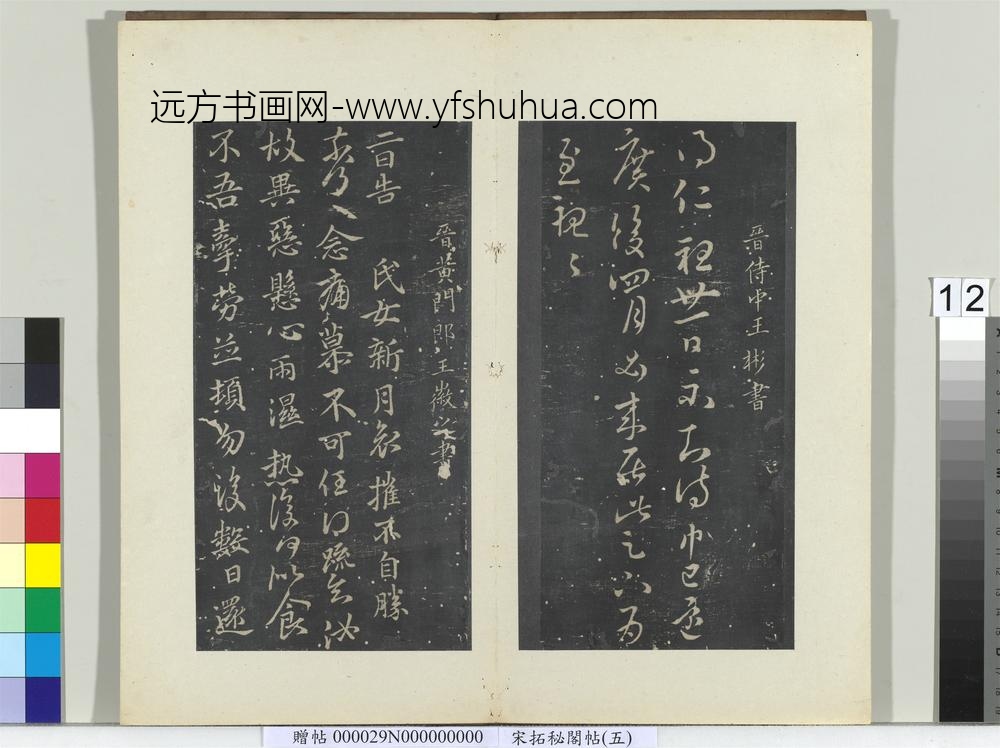 远方书画网-www.yfshuhua.com
晋侍中王彬書
得仁祖廿一日示知侍中已
後四月必來居此之以為
至
晋黃門郎王徽之書
二日告
氏女新月哀摧不自勝
奈何〻念痛慕不可任得疏知汝
故異惡懸心雨濕熱復何似食
不吾牽勞並頓勿復數日還
12
贈帖 000029N000000000 宋拓秘閣帖(五)